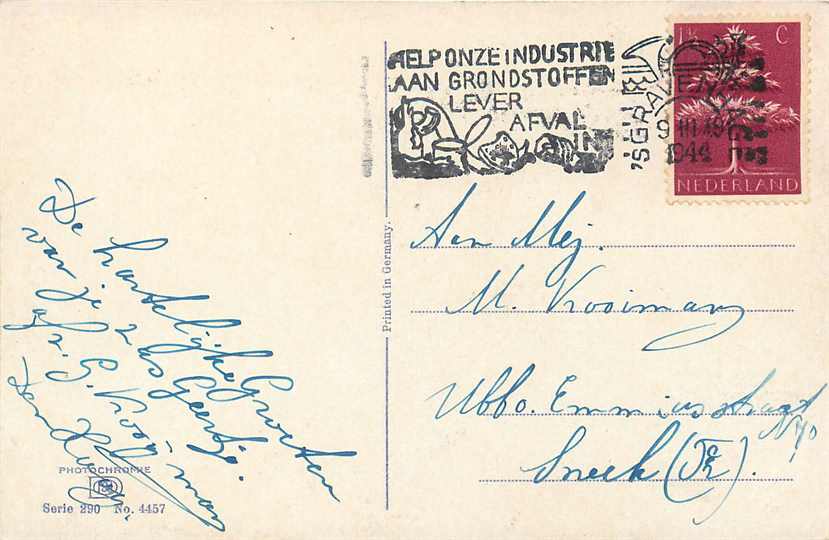 HELP ONZE INDUSTRIE
AAN GRONDSTOFFEN
LEVER
AFVAL
IN
'SGRAVENHAGE
9 III 19
1944
1½ C
NEDERLAND
De hartelijke Groeten
van je zus Geertje.
afz. G. Krooiman
Den Haag.
Printed in Germany.
Aan Mej.
M. Krooiman
Ubbo. Emmiusstraat
Sneek (Fr).
PHOTOCHROMIE
Serie 290 No. 4457